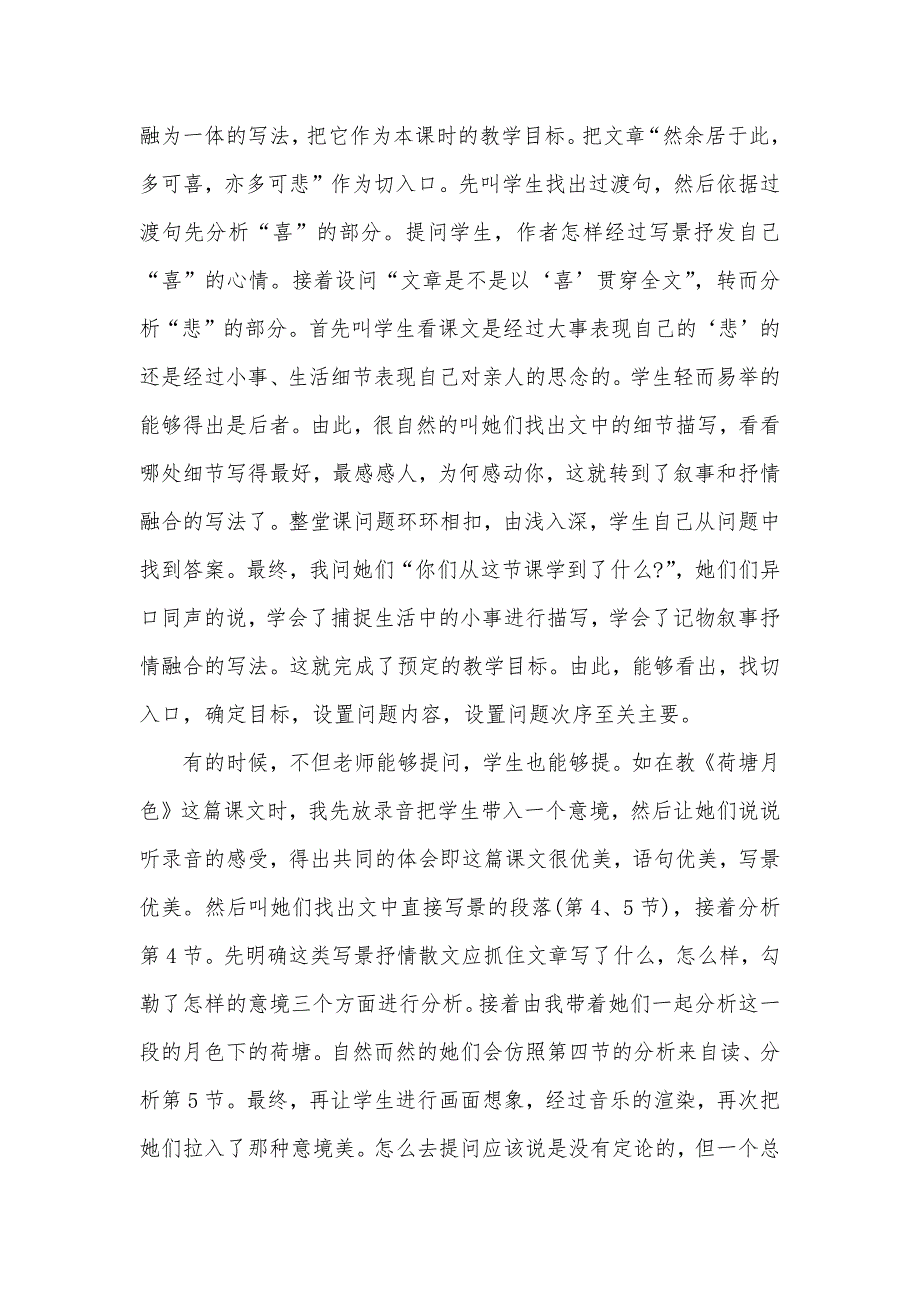 融为一体的写法，把它作为本课时的教学目标。把文章“然余居于此，
多可喜，亦多可悲”作为切入口。先叫学生找出过渡句，然后依据过
渡句先分析“喜”的部分。提问学生，作者怎样经过写景抒发自己
“喜”的心情。接着设问“文章是不是以‘喜’贯穿全文”，转而分
析“悲”的部分。首先叫学生看课文是经过大事表现自己的‘悲’的
还是经过小事、生活细节表现自己对亲人的思念的。学生轻而易举的
能够得出是后者。由此，很自然的叫她们找出文中的细节描写，看看
哪处细节写得最好，最感感人，为何感动你，这就转到了叙事和抒情
融合的写法了。整堂课问题环环相扣，由浅入深，学生自己从问题中
找到答案。最终，我问她们“你们从这节课学到了什么?”，她们们异
口同声的说，学会了捕捉生活中的小事进行描写，学会了记物叙事抒
情融合的写法。这就完成了预定的教学目标。由此，能够看出，找切
入口，确定目标，设置问题内容，设置问题次序至关主要。
有的时候，不但老师能够提问，学生也能够提。如在教《荷塘月
色》这篇课文时，我先放录音把学生带入一个意境，然后让她们说说
听录音的感受，得出共同的体会即这篇课文很优美，语句优美，写景
优美。然后叫她们找出文中直接写景的段落(第4、5节)，接着分析
第4节。先明确这类写景抒情散文应抓住文章写了什么，怎么样，勾
勒了怎样的意境三个方面进行分析。接着由我带着她们一起分析这一
段的月色下的荷塘。自然而然的她们会仿照第四节的分析来自读、分
析第5节。最终，再让学生进行画面想象，经过音乐的渲染，再次把
她们拉入了那种意境美。怎么去提问应该说是没有定论的，但一个总